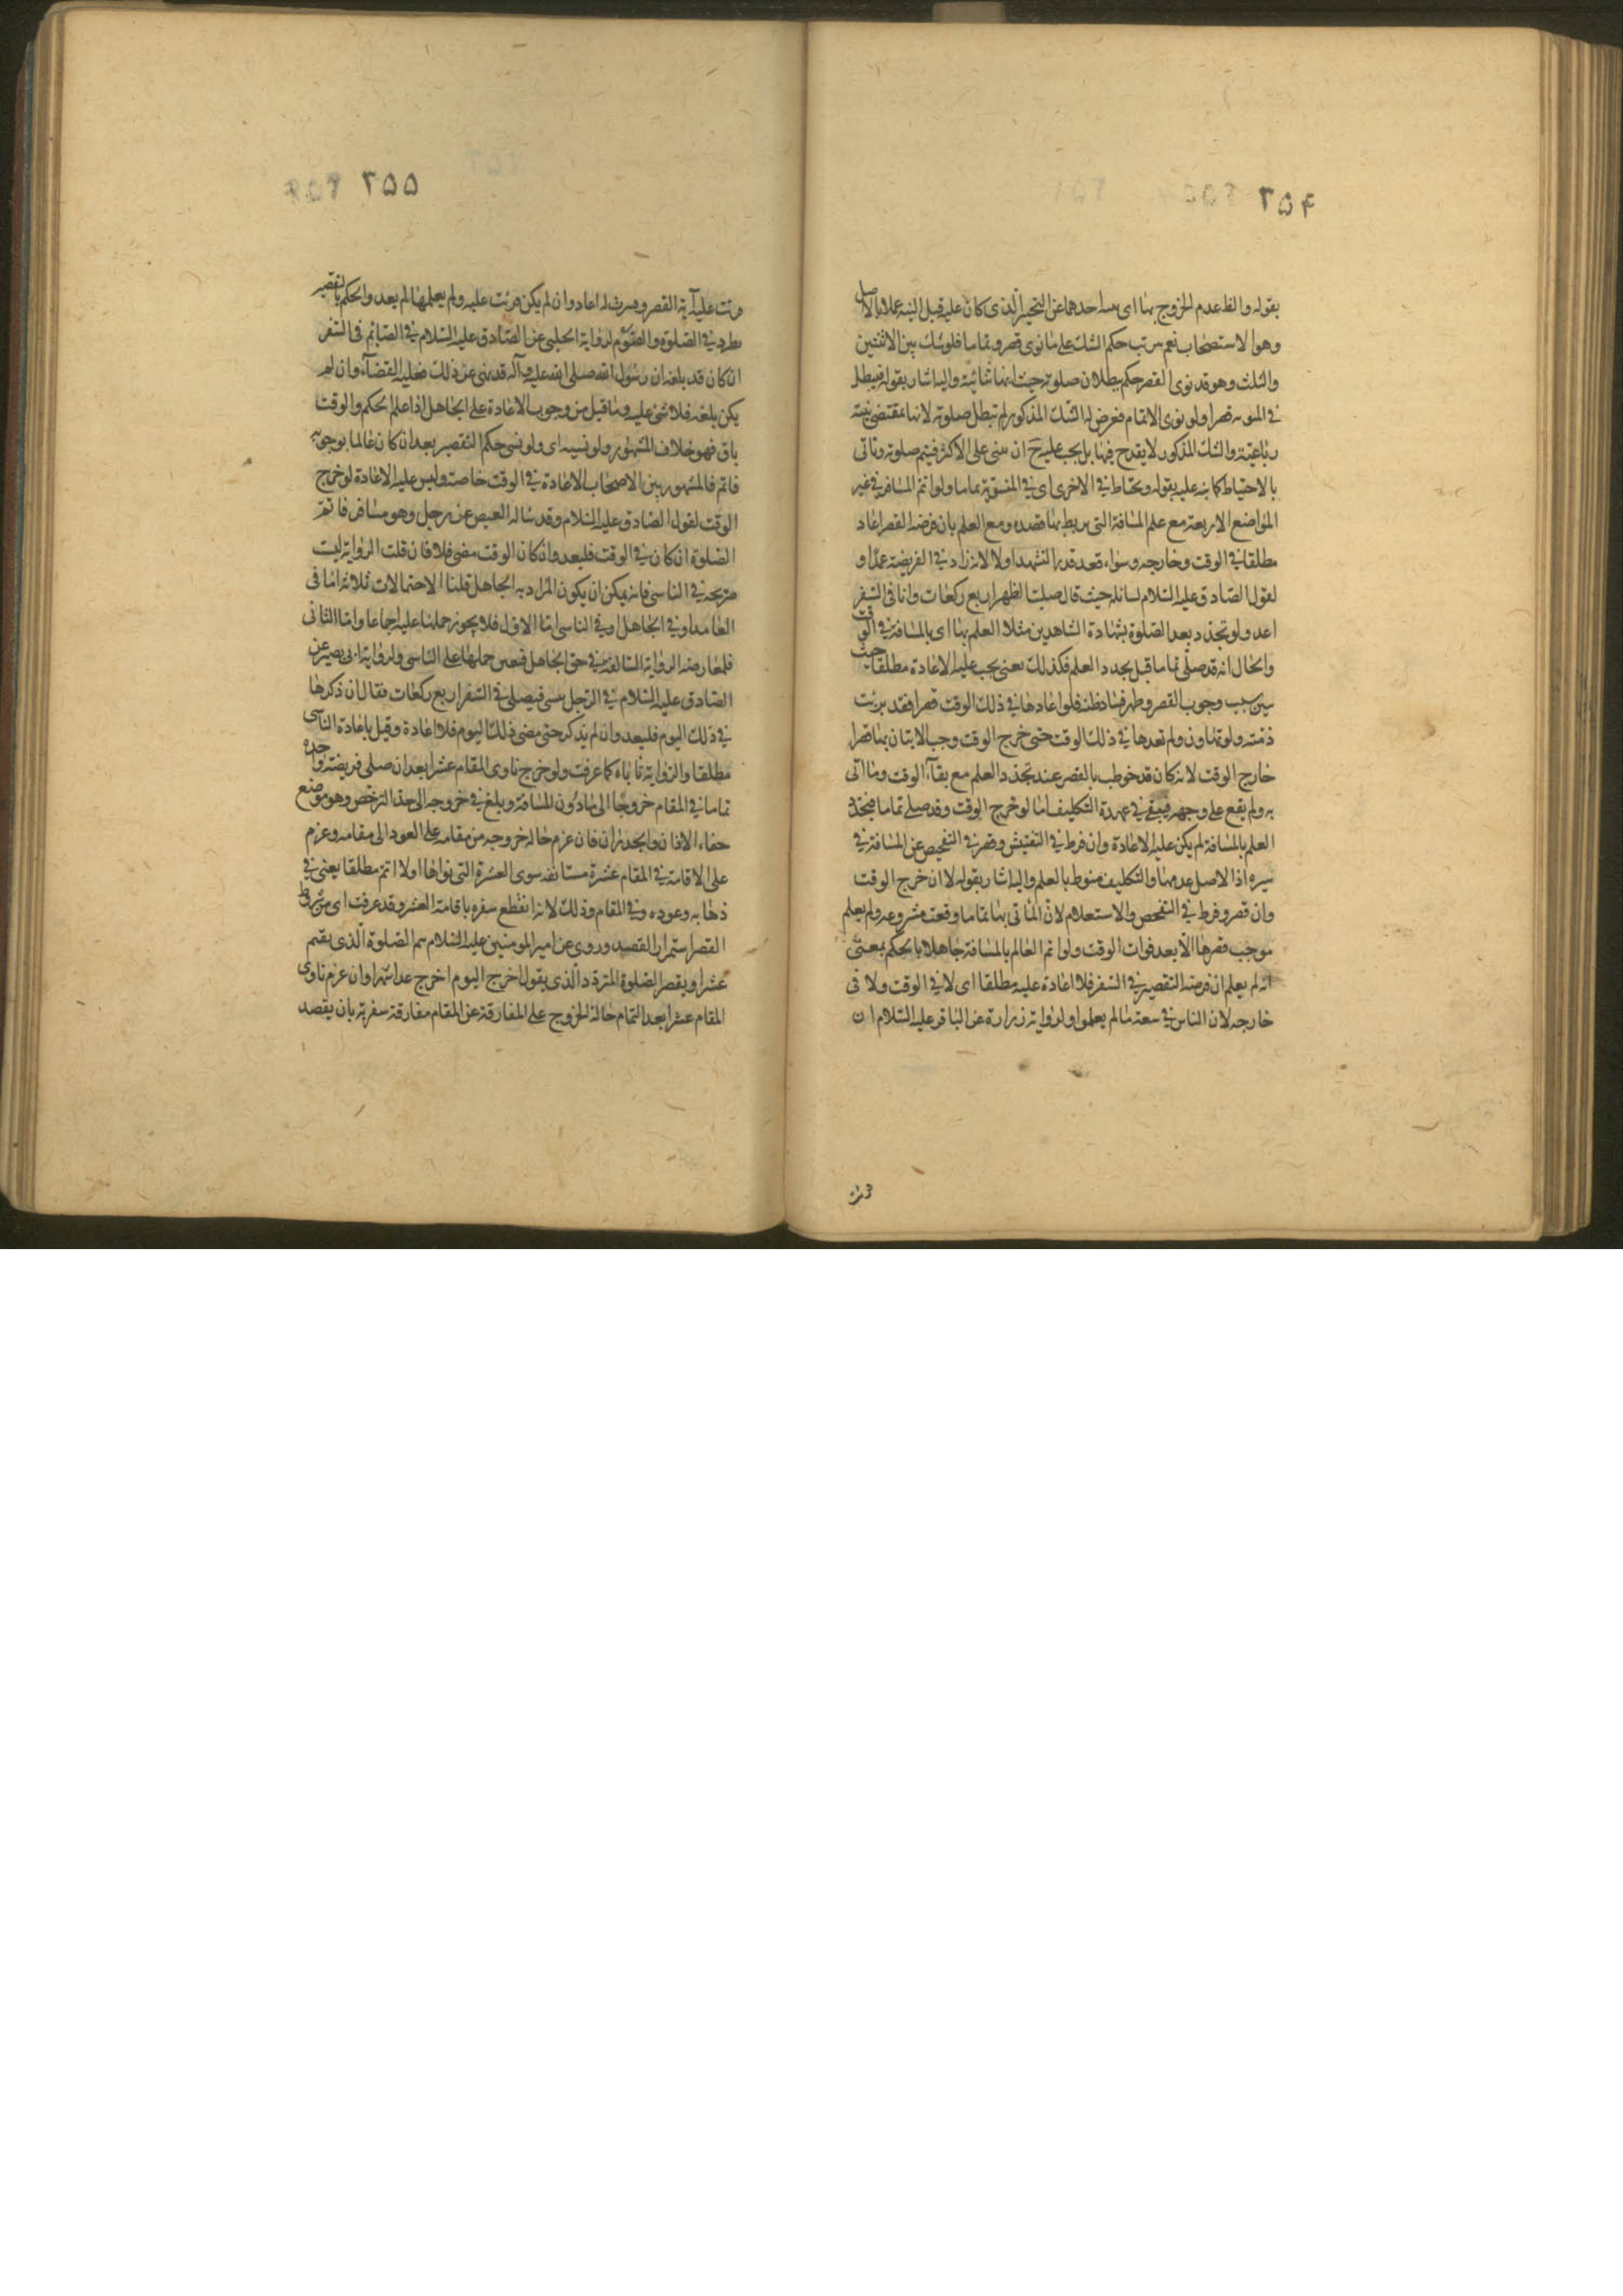 ٢٥۴
بقوله والظ عدم الخروج بها اى بنية احدهما عن التخيير الذى كان عليه قبل النية عملا بالاصل
وهو الاستصحاب نعم يترتب حكم الشك على ما نوى قصر وتماما فلو شك بين الاثنتين
والثلث وهو قد نوى القصر حكم ببطلان صلوته حيث انها ثنائية واليه اشار بقوله فيبطل
في المنوية قصرا ولو نوى الاتمام فعرض له الشك المذكور لم تبطل صلوته لانها بمقتضى نيته
رباعية والشك المذكور لا يقدح فيها بل يجب عليه ح ان يبنى على الاكثر فيتم صلوته وياتى
بالاحتياط كما نبه عليه بقوله ويحتاط في الاخرى اى في المنوية تماما ولو اتم المسافر في غير
المواضع الاربعة مع علم المسافة التى يربط بها قصده ومع العلم بان فرضه القصر اعاد
مطلقا في الوقت وخارجه وسواء قعد قدر التشهد اولا لانه زاد في الفريضة عمدا و
لقول الصادق عليه السلام لسائله حيث قال صليت الظهر اربع ركعات وانا في السفر
اعد ولو تجدد بعد الصلوة بشهادة الشاهدين مثلا العلم بها اى بالمسافة في الوقت
والحال انه قد صلى تماما قبل تجدد العلم فكذلك يعنى يجب عليه الاعادة مطلقا حيث
تبين سبب وجوب القصر وظهر فساد ظنه فلو اعادها في ذلك الوقت قصرا فقد برئت
ذمته ولو تهاون ولم يعدها في ذلك الوقت حتى خرج الوقت وجب الاتيان بها قصرا
خارج الوقت لانه كان قد خوطب بالقصر عند تجدد العلم مع بقاء الوقت وما اتى
به ولم يقع على وجهه فيبقى في عهدة التكليف اما لو خرج الوقت وقد صلى تماما فتجدد
العلم بالمسافة لم يكن عليه الاعادة وان فرط في التفتيش وقصر في التفحيص عن المسافة في
سيره اذا الاصل عدمها والتكليف منوط بالعلم واليه اشار بقوله لا ان خرج الوقت
وان قصر وفرط في التفحص والاستعلام لان المأتى بها تماما وقعت مشروعة ولم يعلم
موجب قصرها الا بعد فوات الوقت ولو اتم العالم بالمسافة جاهلا بالحكم بمعنى
انه لم يعلم ان فرضه التقصير في السفر فلا اعادة عليه مطلقا اى لا في الوقت ولا في
خارجه لان الناس في سعة مالم يعلموا ولرواية زرارة عن الباقر عليه السلام ان
٢٥٥
قرئت عليه آية القصر وفسرت له اعاد وان لم يكن قرئت عليه ولم يعلمها لم يعد والحكم بالتقصير
مطرد في الصلوة والصوم لرواية الحلبى عن الصادق عليه السلام في الصائم في السفر
ان كان قد بلغه ان رسول الله صلى الله عليه وآله قد نهى عن ذلك فعليه القضاء وان لم
يكن بلغه فلا شئ عليه وما قيل من وجوب الاعادة على الجاهل اذا علم الحكم والوقت
باق فهو خلاف المشهور ولو نسيه اى ولو نسى حكم التقصير بعد ان كان عالما بوجوبه
فاتم فالمشهور بين الاصحاب الاعادة في الوقت خاصة وليس عليه الاعادة لو خرج
الوقت لقول الصادق عليه السلام وقد سأله العيص عن رجل وهو مسافر فاتم
الصلوة ان كان في الوقت فليعد وان كان الوقت مضى فلا فان قلت الرواية ليست
صريحة في الناسى فانه يمكن ان يكون المراد به الجاهل قلنا الاحتمالات ثلاثة اما في
العامد او في الجاهل او في الناسى اما الاول فلا يجوز حملنا عليه اجماعا واما الثانى
فلمعارضة الرواية السالفة في حق الجاهل فتعين حملها على الناسى ولرواية ابى بصير عن
الصادق عليه السلام في الرجل ينسى فيصلى في السفر اربع ركعات فقال ان ذكرها
في ذلك اليوم فليعد وان لم يذكر حتى مضى ذلك اليوم فلا اعادة وقيل باعادة الناسى
مطلقا والرواية تاباه كما عرفت ولو خرج ناوى المقام عشرا بعد ان صلى فريضة واحدة
تماما في المقام خروجا الى مادون المسافة وبلغ في خروجه الى حد الترخص وهو موضع
خفاء الاذان والجدران فان عزم حالة خروجه من مقامه على العود الى مقامه وعزم
على الاقامة في المقام عشرة مستانفة سوى العشرة التى نواها اولا اتم مطلقا يعنى في
ذهابه وعوده وفي المقام وذلك لانه انقطع سفره باقامة العشر وقد عرفت اى من شروط
القصر استمرار القصد وروى عن امير المومنين عليه السلام يتم الصلوة الذى يقيم
عشرا ويقصر الصلوة المتردد الذى يقول اخرج اليوم اخرج غدا شهرا وان عزم ناوى
المقام عشرا بعد التمام حالة الخروج على المفارقة عن المقام مفارقة سفرية بان يقصد